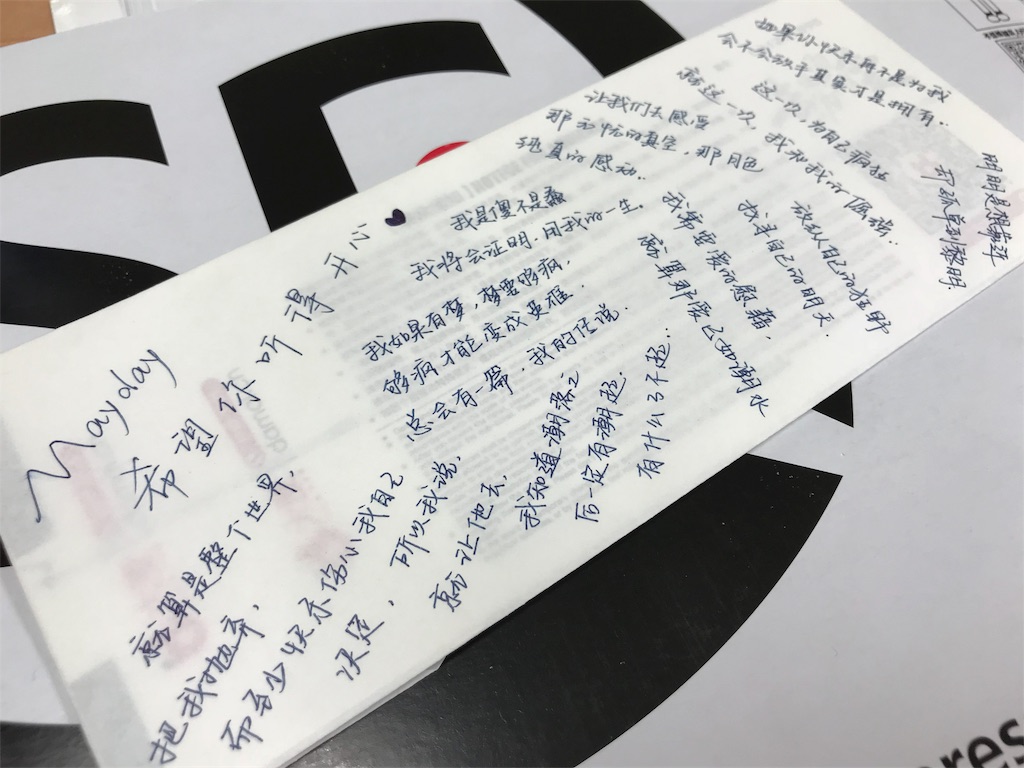 Mayday
希望你听得开心
就算是整个世界，
把我抛弃，
而至少快乐伤心我自己
决定，
所以我说，
就让他去，
我知道潮落之
后一定有潮起。
有什么了不起。
我是傻不是蠢
我将会证明.用我的一生.
我如果有梦，梦要够疯，
够疯才能变成英雄
总会有一篇，我的传说.
让我们去感受
那无忧的真空，那月色
纯真的感动..
我希望爱而慰藉，
就算那爱已如潮水
如果你快乐再不是为我
会不会放手其实才是拥有..
就这一次，我和我的倔强..
这一次，为自己疯狂
放纵自己的狂野
找寻自己的明天.
明明是想靠近
却孤单到黎明.